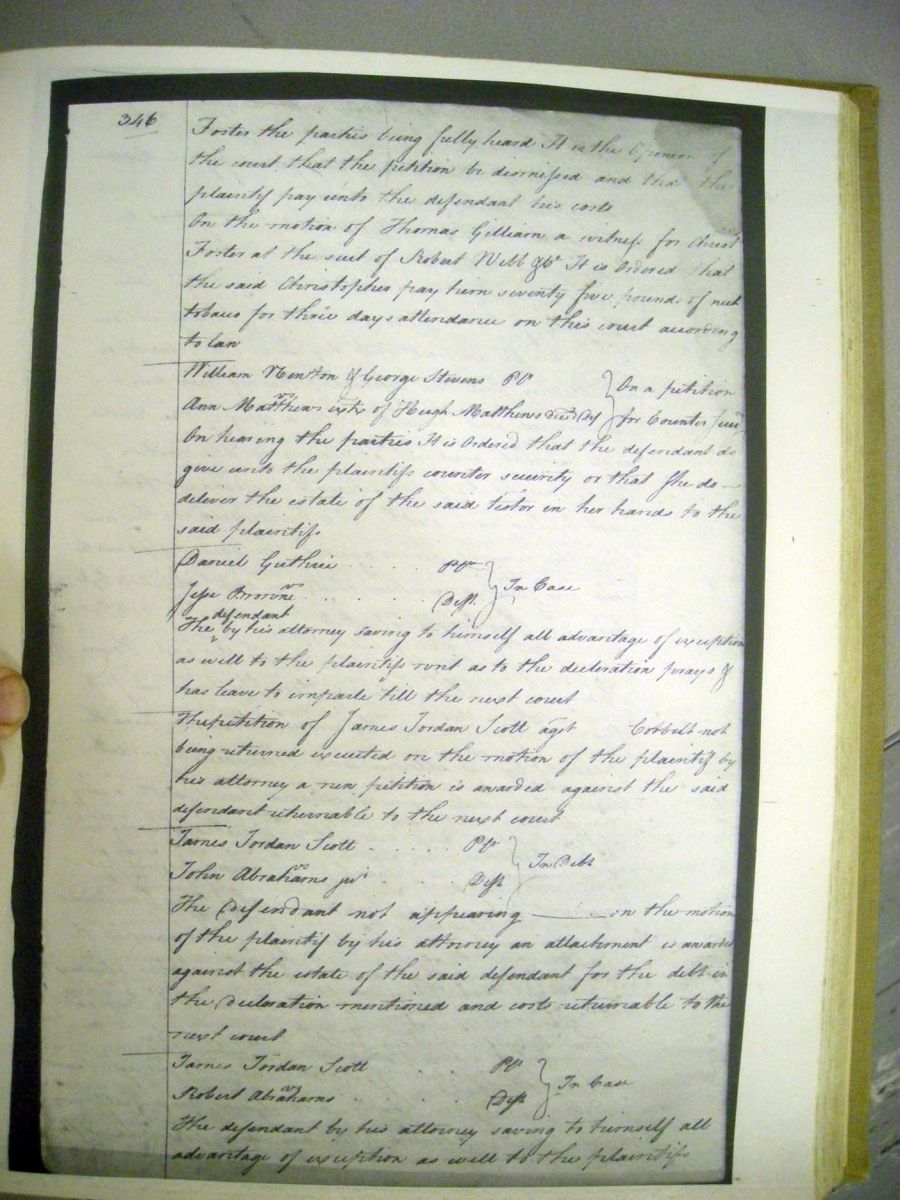 346
Foster the parties being fully heard It is the Opinion of
the court that the petition be dismissed and that the
plaintif pay unto the defendant his costs
On the motion of Thomas Gilliam a witness for Christ
Foster at the suit of Robert Webb It is Ordered that
the said Christopher pay him seventy five pounds of nett
tobacco for three days attendance on this court according
to law
William Newton & George Stevens Plt
On a petition
vs
Ann Matthews extx of Hugh Matthews decd Def
for Counter
On hearing the parties It is Ordered that the defendant do
give unto the plaintifs counter security or that she do
deliver the estate of the said testor in her hands to the
said plaintifs
Daniel Guthrie . . . . Plt
In Case
vs
Jesse Browne . . . . Deft
defendant
The by his attorney saving to himself all advantage of exception
as well to the plaintifs writ as to the declaration prays &
has leave to imparle till the next court
The petition of James Jordan Scott agst Cobbelt not
being returned executed on the motion of the plaintif by
his attorney a new petition is awarded against the said
defendant returnable to the next court
James Jordan Scott . . . . . Plt
In Debt
vs
John Abrahams junr . . . Deft
The Defendant not appearing ——— on the motion
of the plaintif by his attorney an attachment is awarded
against the estate of the said defendant for the debt in
the Declaration mentioned and costs returnable to the
next court
James Jordan Scott . . . Plt
In Case
vs
Robert Abrahams . . . . . Deft
The defendant by his attorney saving to himself all
advantage of exception as well to the plaintifs